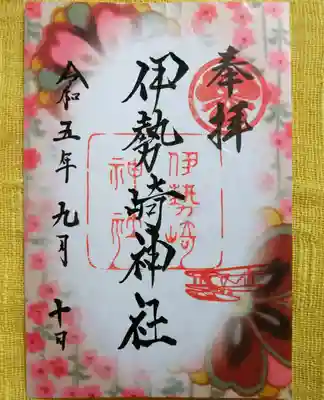 奉拝
伊勢崎神社
伊勢崎
神社
令和五年 九月 十日